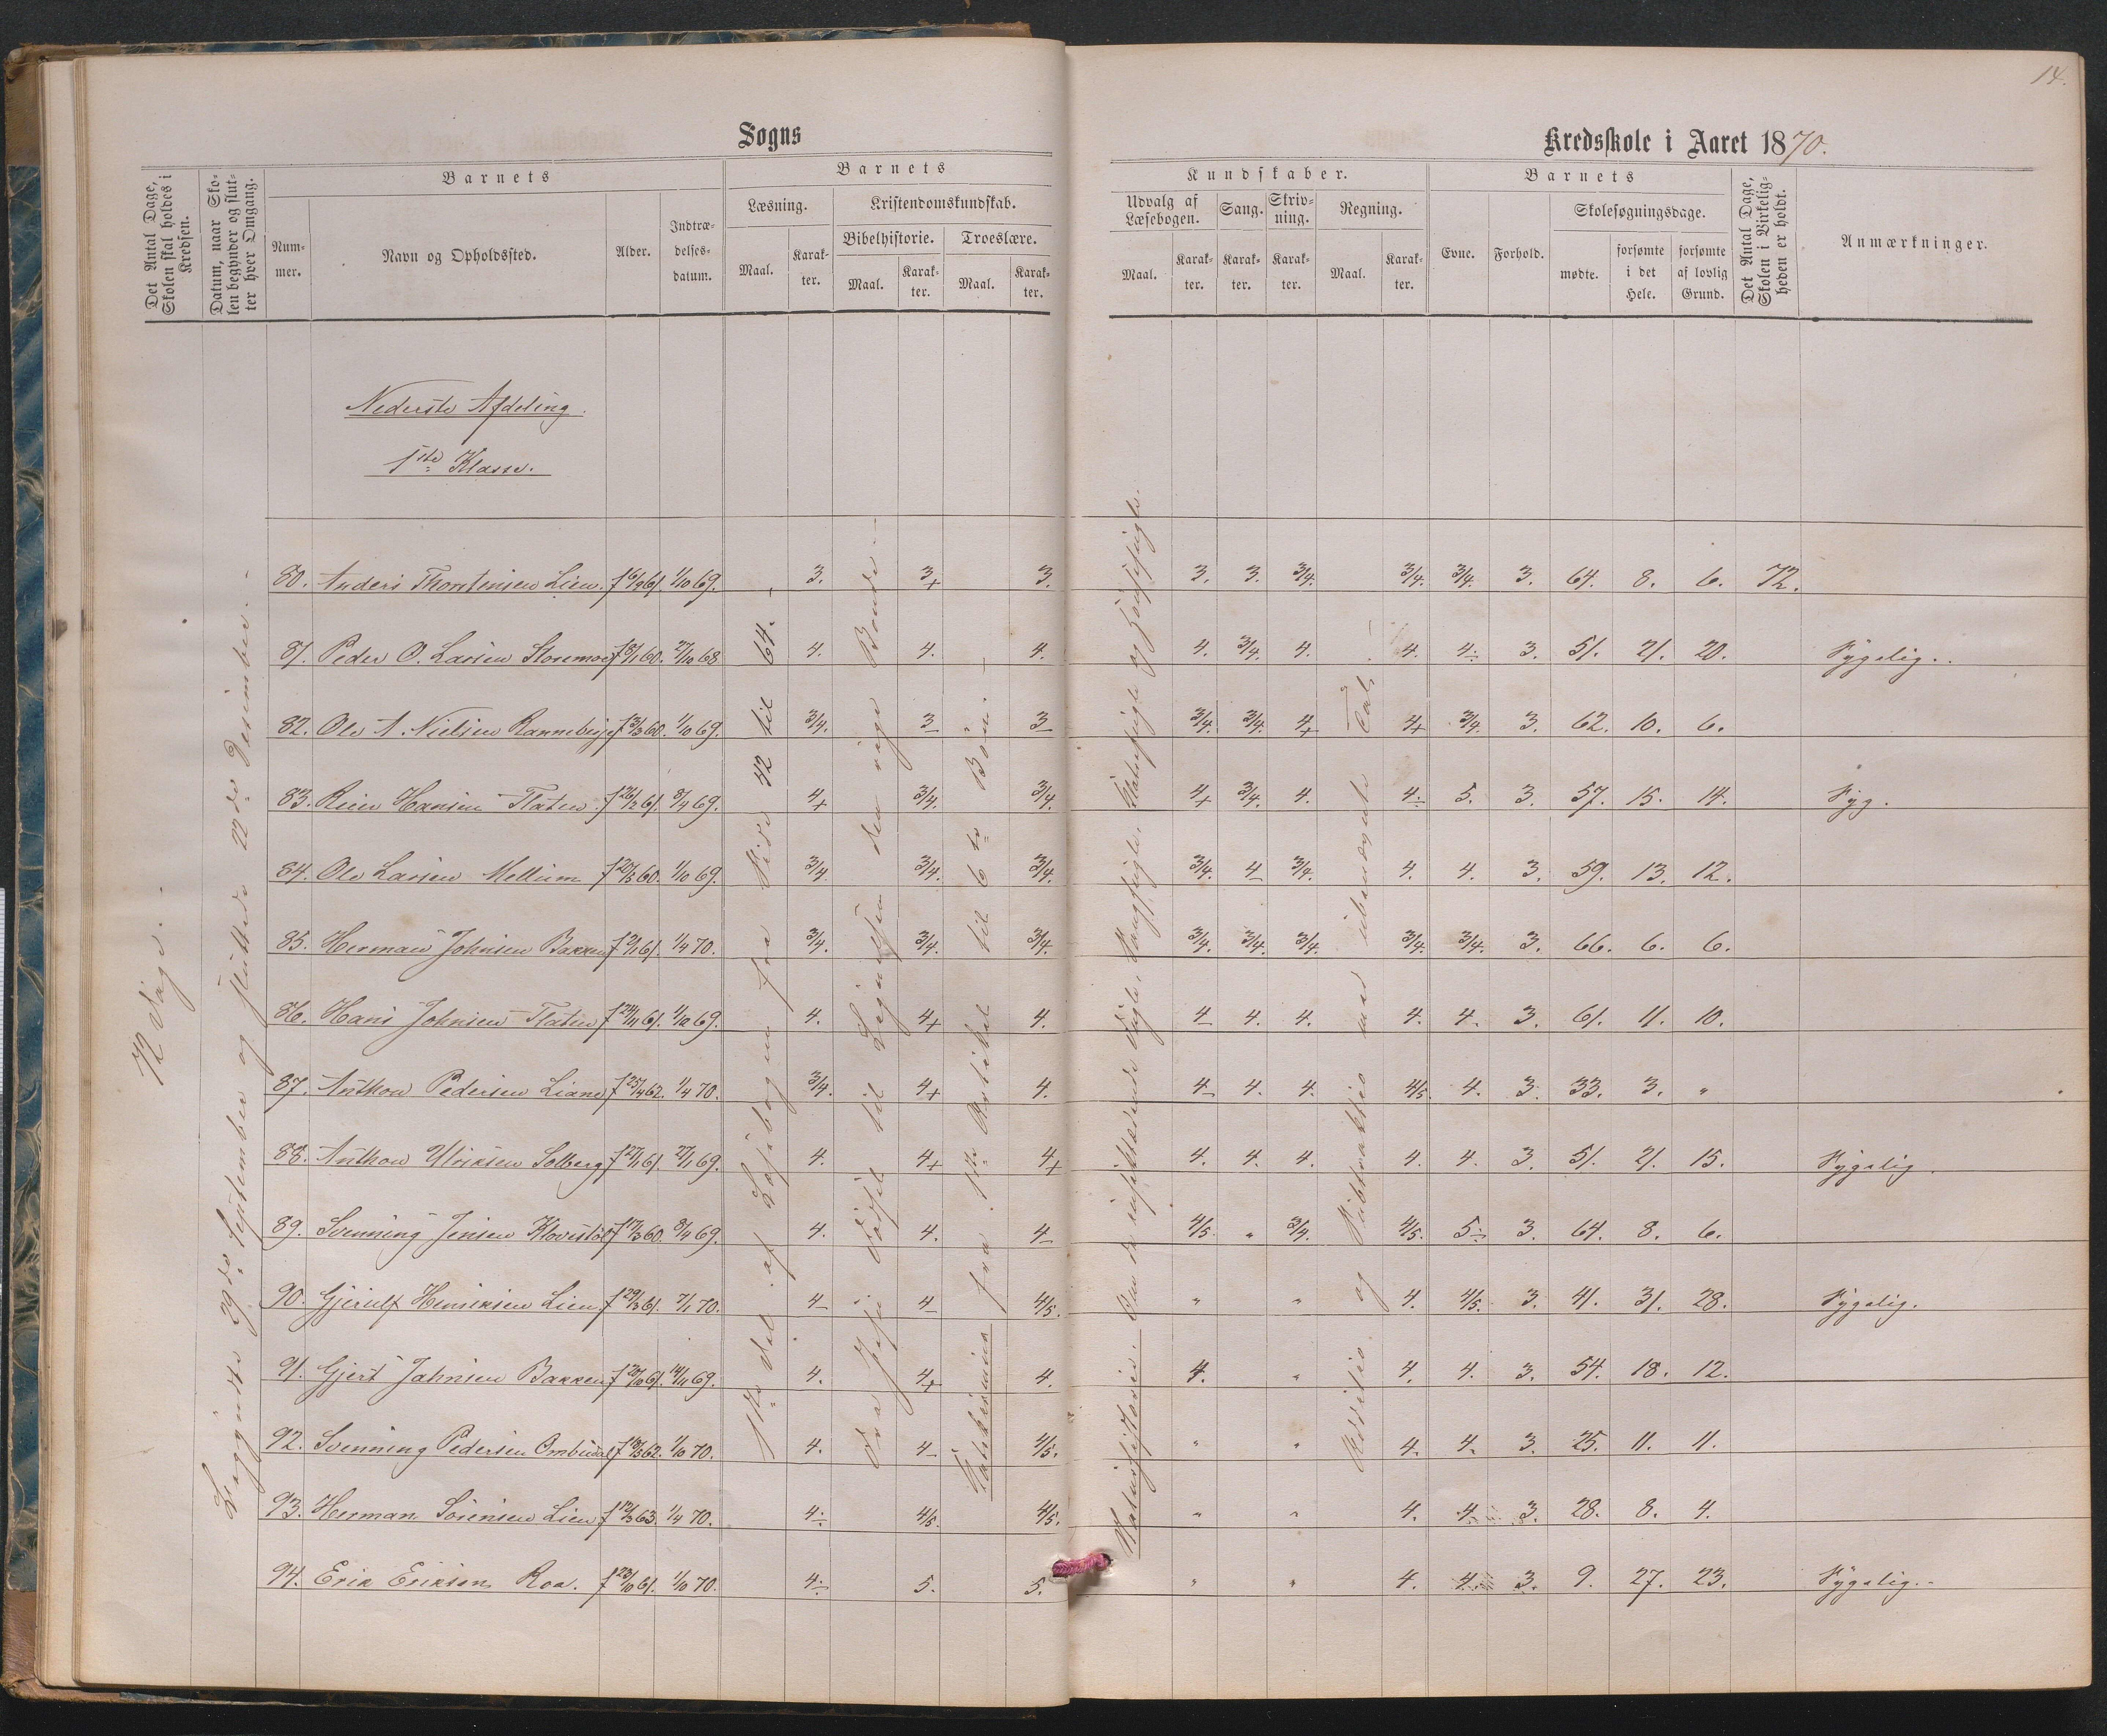 14.
Sogns
Kredsskole i Aaret 1870.
Det Antal Dage, Skolen skal holdes i Kredsen.
Datum, naar Skolen begynder og slutter hver Omgang.
Barnets
Nummer.
Navn og Opholdssted.
Alder.
Indtrædelsesdatum.
Barnets
Læsning.
Maal.
Karakter.
Kristendomskundskab.
Bibelhistorie.
Maal.
Karakter.
Troeslære.
Maal.
Karakter.
Kundskaber.
Udvalg af Læsebogen.
Maal.
Karakter.
Sang.
Karakter.
Skrivning.
Karakter.
Regning.
Maal.
Karakter.
Barnets
Evne.
Forhold.
Skolesøgningsdage.
mødte.
forsømte i det Hele.
forsømte af lovlig Grund.
Det Antal Dage, Skolen i Virkeligheden er holdt.
Anmærkninger.
Nederste Afdeling.
1ste Klasse.
72 Dage.
Begyndte 29de September og sluttede 22de Desember.
1ste Del af Læsebogen fra Side 42 til 64.
Fra Jesu Daab til Lignelsen om den rige Bonde.
Katekismen fra 1ste Artikel til 6te Bøn.
Naturhistorie.
og Subtraktion med ubenævnte Tal.
80. Anders Thorstensen Lien. f 6/9 61. 1/10 69. 3. 3+ 3. 3. 3. 3/4. 3/4. 3/4. 3. 64. 8. 6. 72.
81. Peder O. Larsen Storemoe f 8/1 60. 27/10 68 4. 4. 4. 4. 3/4. 4. 4. 4÷ 3. 51. 21. 20. Sygelig.
82. Ole A. Nielsen Ranneberg f 3/3 60. 1/10 69. 3/4. 3- 3- 3/4. 3/4. 4+ 4+ 3/4. 3. 62. 10. 6.
83. Reier Hansen Flaten f 26/2 61. 8/4 69. 4+ 3/4. 3/4. 4+ 3/4. 4. 4÷ 5. 3. 57. 15. 14. Syg.
84. Ole Larsen Mellum f 20/3 60. 1/10 69. 3/4 3/4. 3/4. 3/4. 4- 3/4. 4. 4. 3. 59. 13. 12.
85. Herman Johnsen Bakken f 2/1 61. 1/4 70. 3/4. 3/4. 3/4. 3/4. 3/4. 3/4. 3/4. 3/4. 3. 66. 6. 6.
86. Hans Johnsen Flaten f 24/11 61. 1/10 69. 4. 4+ 4. 4- 4. 4. 4. 4. 3. 61. 11. 10.
87. Anthon Pedersen Liane f 25/4 62. 1/4 70. 3/4. 4+ 4. 4- 4. 4. 4/5. 4. 3. 33. 3. "
88. Anthon Ulriksen Solberg f 27/1 61. 27/1 69. 4. 4+ 4+ 4. 4. 4. 4. 4. 3. 51. 21. 15. Sygelig.
89. Svenning Jensen Klovstøl f 17/3 60. 8/4 69. 4. 4. 4- 4/5. " 3/4. 4/5. 5÷ 3. 64. 8. 6.
90. Gjerulf Henriksen Lien f 29/3 61. 7/1 70. 4- 4- 4/5. " " 4. 4/5. 3. 41. 31. 28. Sygelig.
91. Gjert Johnsen Bakken f 20/10 61. 14/11 69. 4. 4+ 4. 4. " 4. 4. 3. 54. 18. 12.
92. Svenning Pedersen Ombudal f 19/5 62. 1/10 70. 4. 4- 4/5. " " 4. 4. 3. 25. 11. 11.
93. Herman Sörensen Lien f 12/3 63. 1/4 70. 4÷ 4/5. 4/5. " " 4. 4. 3. 28. 8. 4.
94. Erik Eriksen Roa. f 23/10 61. 1/10 70. 4÷ 5. 5. " " 4. 4. 3. 9. 27. 23. Sygelig.